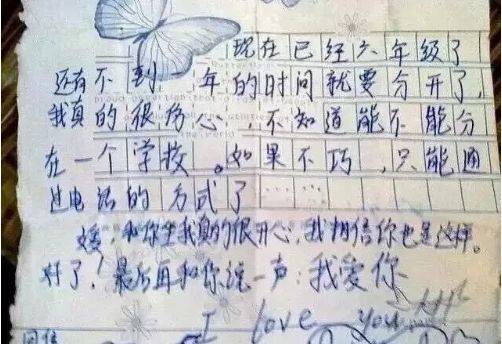 现在已经六年级了
还有不到一年的时间就要分开了,
我真的很伤心,不知道能不能分
在一个学校。如果不巧,只能通
过电话的方式了……
媛,和你坐我真的很开心,我相信你也是这样。
好了!最后再和你说一声:我爱你
I love you
回信